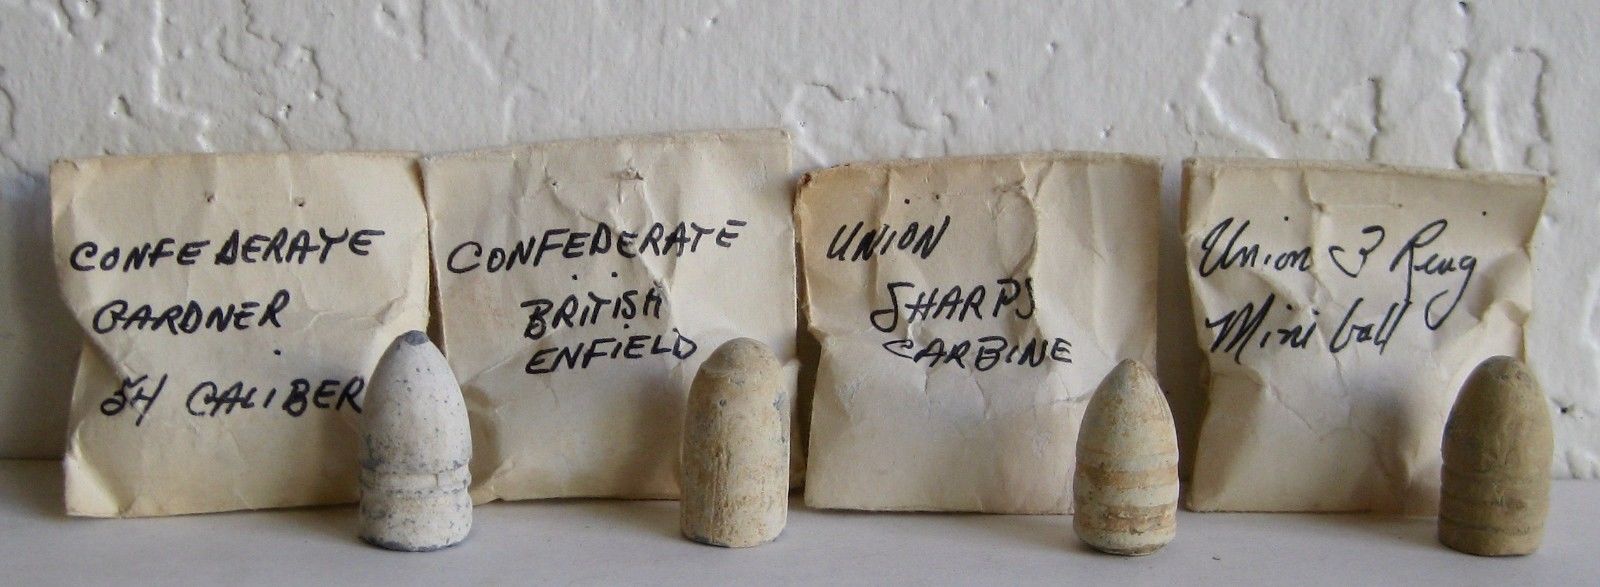 CONFEDERATE
GARDNER
54 CALIBER
CONFEDERATE
BRITISH
ENFIELD
UNION
SHARPS
CARBINE
Union 3 Ring
Mini ball